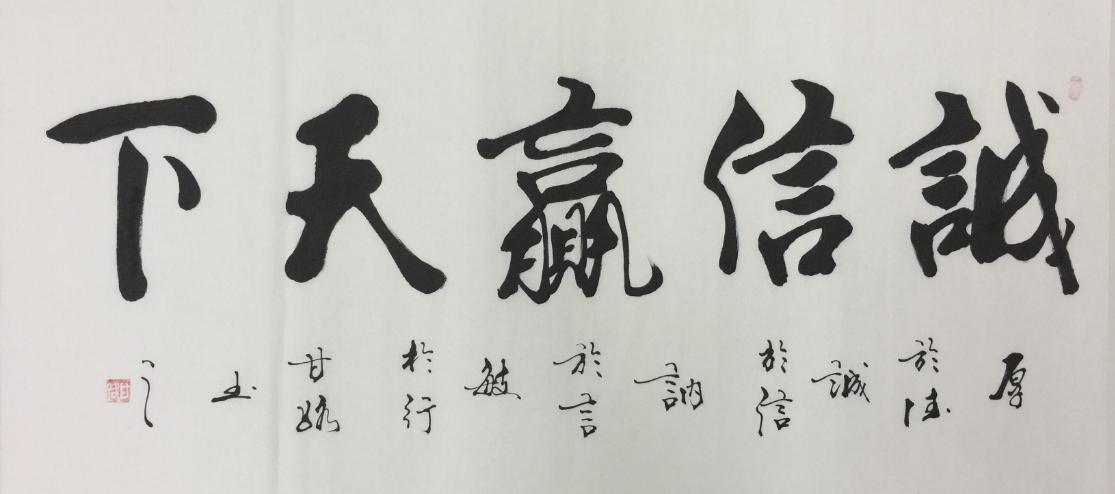 誠信贏天下
厚於德誠於信訥於言敏於行甘路书之